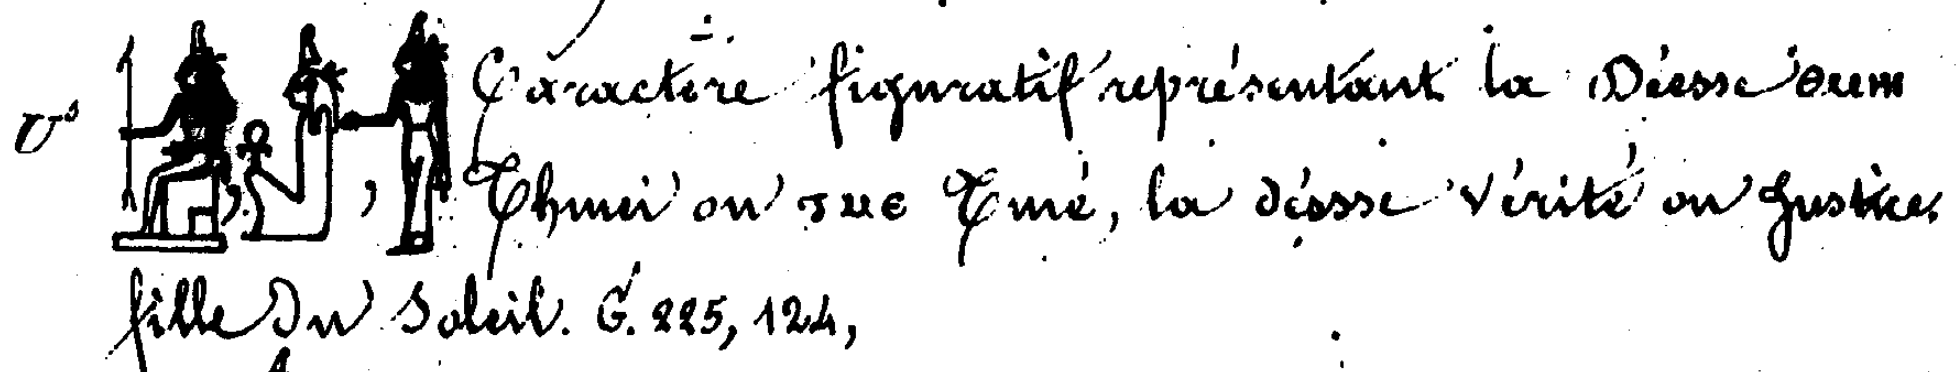 Vˢ 𓁦, 𓁦, 𓁦 Caractère figuratif représentant la Déesse ⲑⲙⲏⲓ
Thmei ou ⲧⲙⲉ Tmé, la déesse Vérité ou Justice,
fille du Soleil. G. 225, 124,